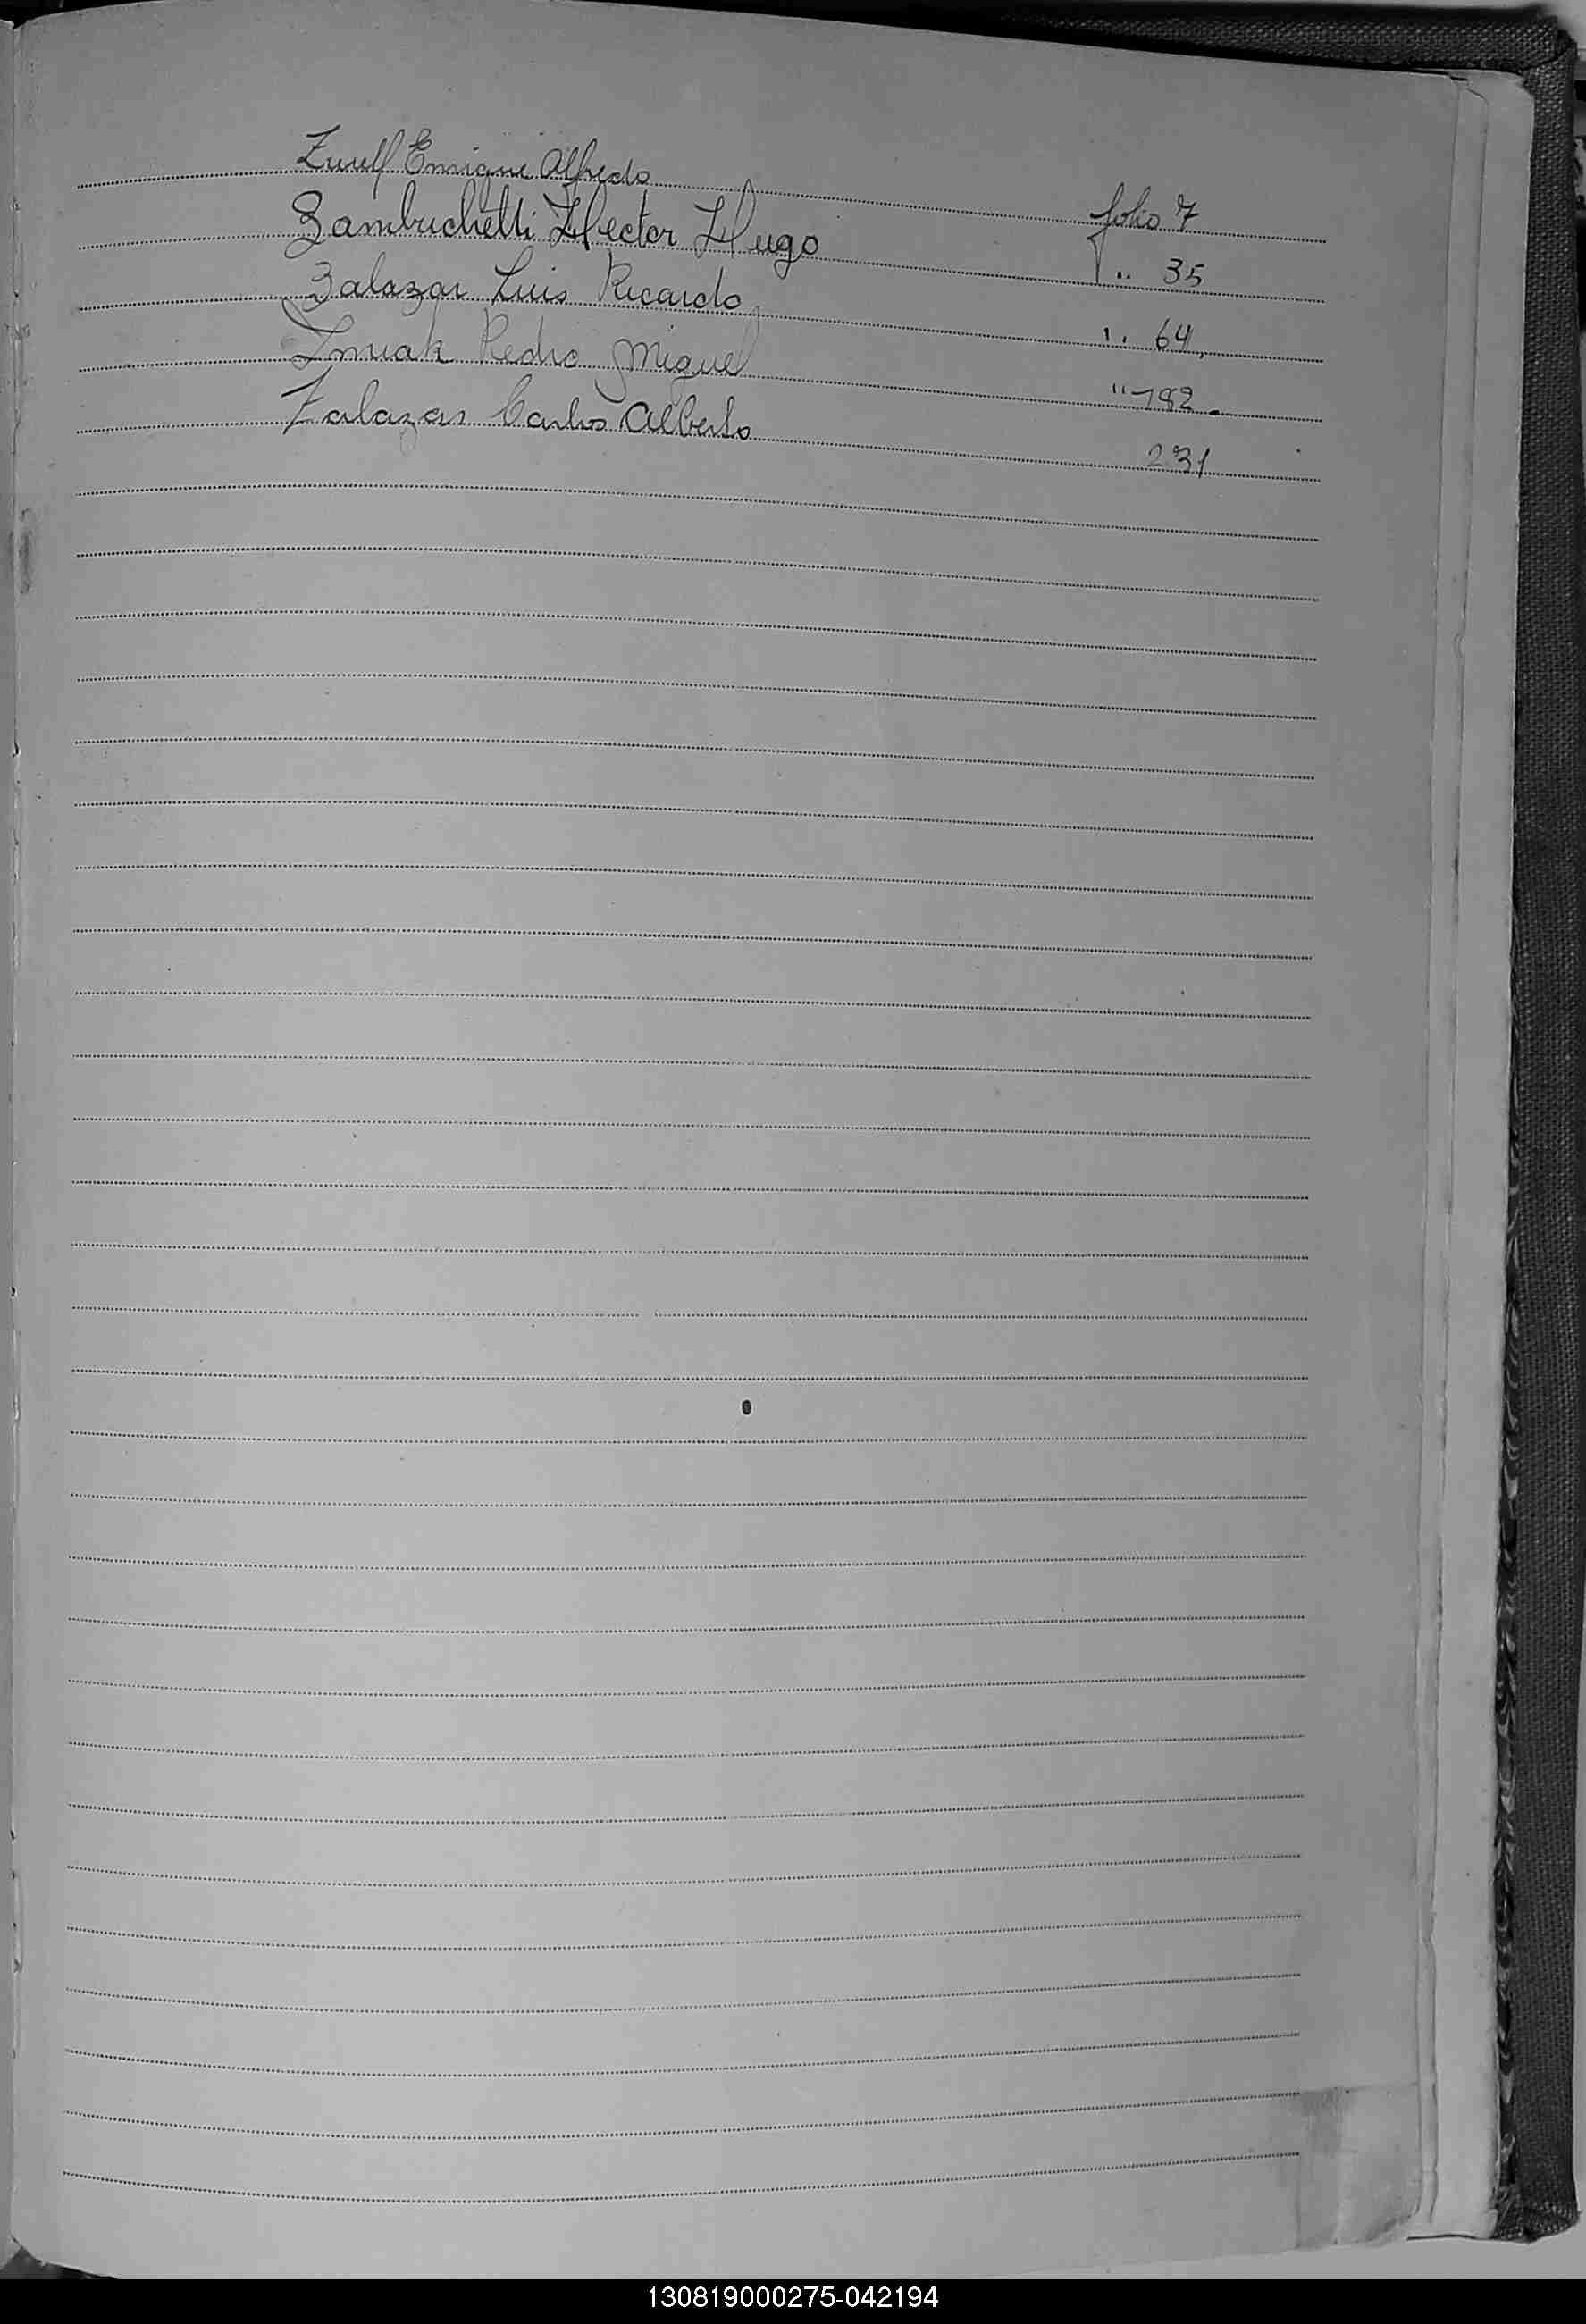 Enrique Alfredo folio 7
Zambuchetti Hector Hugo " 35
Zalazar Luis Ricardo " 64
Pedro Miguel " 182
Zalazar Carlos Alberto 231
130819000275-042194